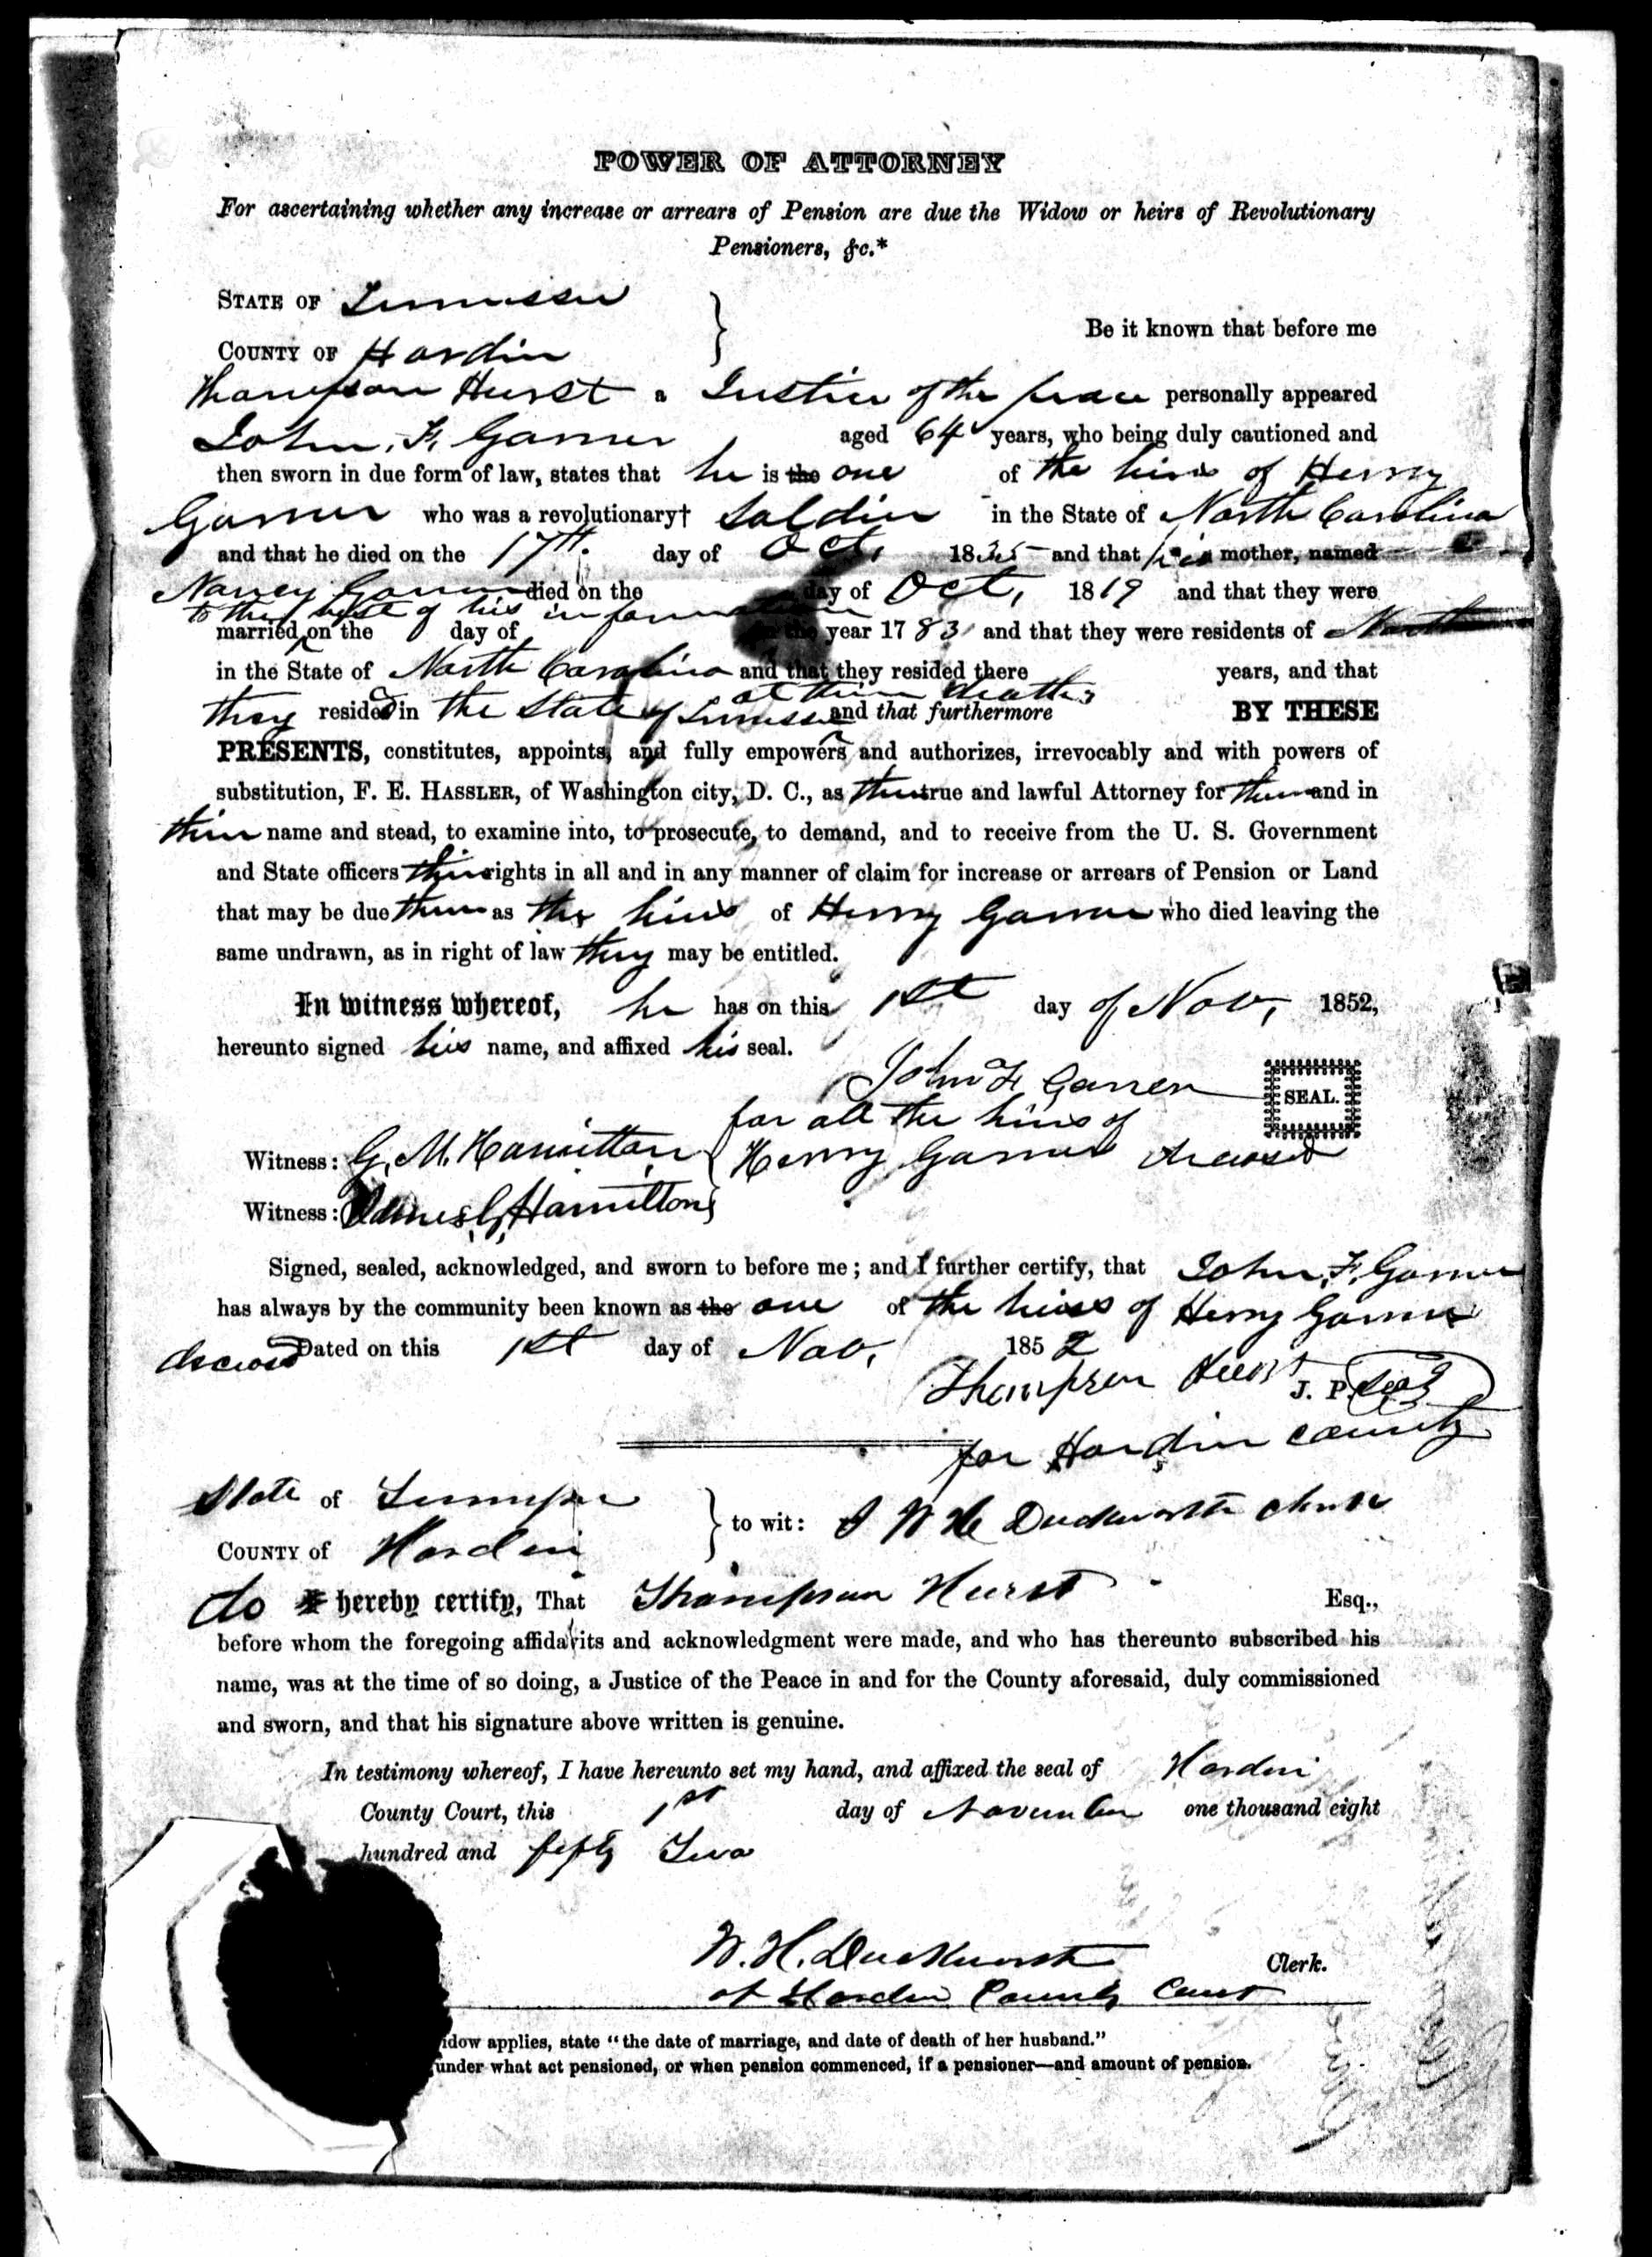 POWER OF ATTORNEY
For ascertaining whether any increase or arrears of Pension are due the Widow or heirs of Revolutionary
Pensioners, &c.*
STATE OF Tennessee
Be it known that before me
COUNTY OF Hardin
Thompson Hurst a Justice of the peace personally appeared
John. F. Garner aged 64 years, who being duly cautioned and
then sworn in due form of law, states that he is the one of the heirs of Henry
Garner who was a revolutionary† Soldier in the State of North Carolina
and that he died on the 17th. day of Oct. 1835 and that his mother, named
Nancy Garner died on the day of Oct, 1819 and that they were
to the best of his information
married on the day of year 1783 and that they were residents of North
in the State of North Carolina and that they resided there years, and that
at their deaths
they resided in the State of Tennessee and that furthermore BY THESE
PRESENTS, constitutes, appoints, and fully empowers and authorizes, irrevocably and with powers of
substitution, F. E. HASSLER, of Washington city, D. C., as their true and lawful Attorney for them and in
their name and stead, to examine into, to prosecute, to demand, and to receive from the U. S. Government
and State officers their rights in all and in any manner of claim for increase or arrears of Pension or Land
that may be due them as the heirs of Henry Garner who died leaving the
same undrawn, as in right of law they may be entitled.
In witness whereof, he has on this 1st day of Nov, 1852,
hereunto signed his name, and affixed his seal.
John F Garner
SEAL.
for all the heirs of
Witness: G. M. Hamilton Henry Garner deceased
Witness: James G. Hamilton
Signed, sealed, acknowledged, and sworn to before me; and I further certify, that John. F. Garner
has always by the community been known as the one of the heirs of Henry Garner
deceased Dated on this 1st day of Nov. 1852
Thompson Hurst J. P. Seal
for Hardin county
State of Tennessee
to wit: I W H Duckworth Clerk
COUNTY of Hardin
do I hereby certify, That Thompson Hurst Esq.,
before whom the foregoing affidavits and acknowledgment were made, and who has thereunto subscribed his
name, was at the time of so doing, a Justice of the Peace in and for the County aforesaid, duly commissioned
and sworn, and that his signature above written is genuine.
In testimony whereof, I have hereunto set my hand, and affixed the seal of Hardin
County Court, this 1st day of November one thousand eight
hundred and fifty Two
W. H. Duckworth Clerk.
of Hardin County Court
idow applies, state "the date of marriage, and date of death of her husband."
under what act pensioned, or when pension commenced, if a pensioner—and amount of pension.